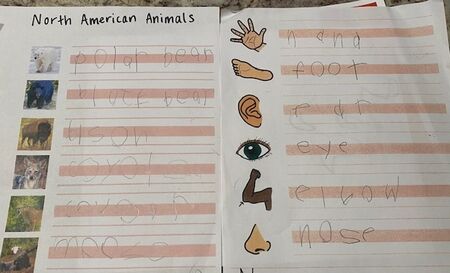 North American Animals
polar bear
black bear
bison
coyote
moose
hand
foot
ear
eye
elbow
nose